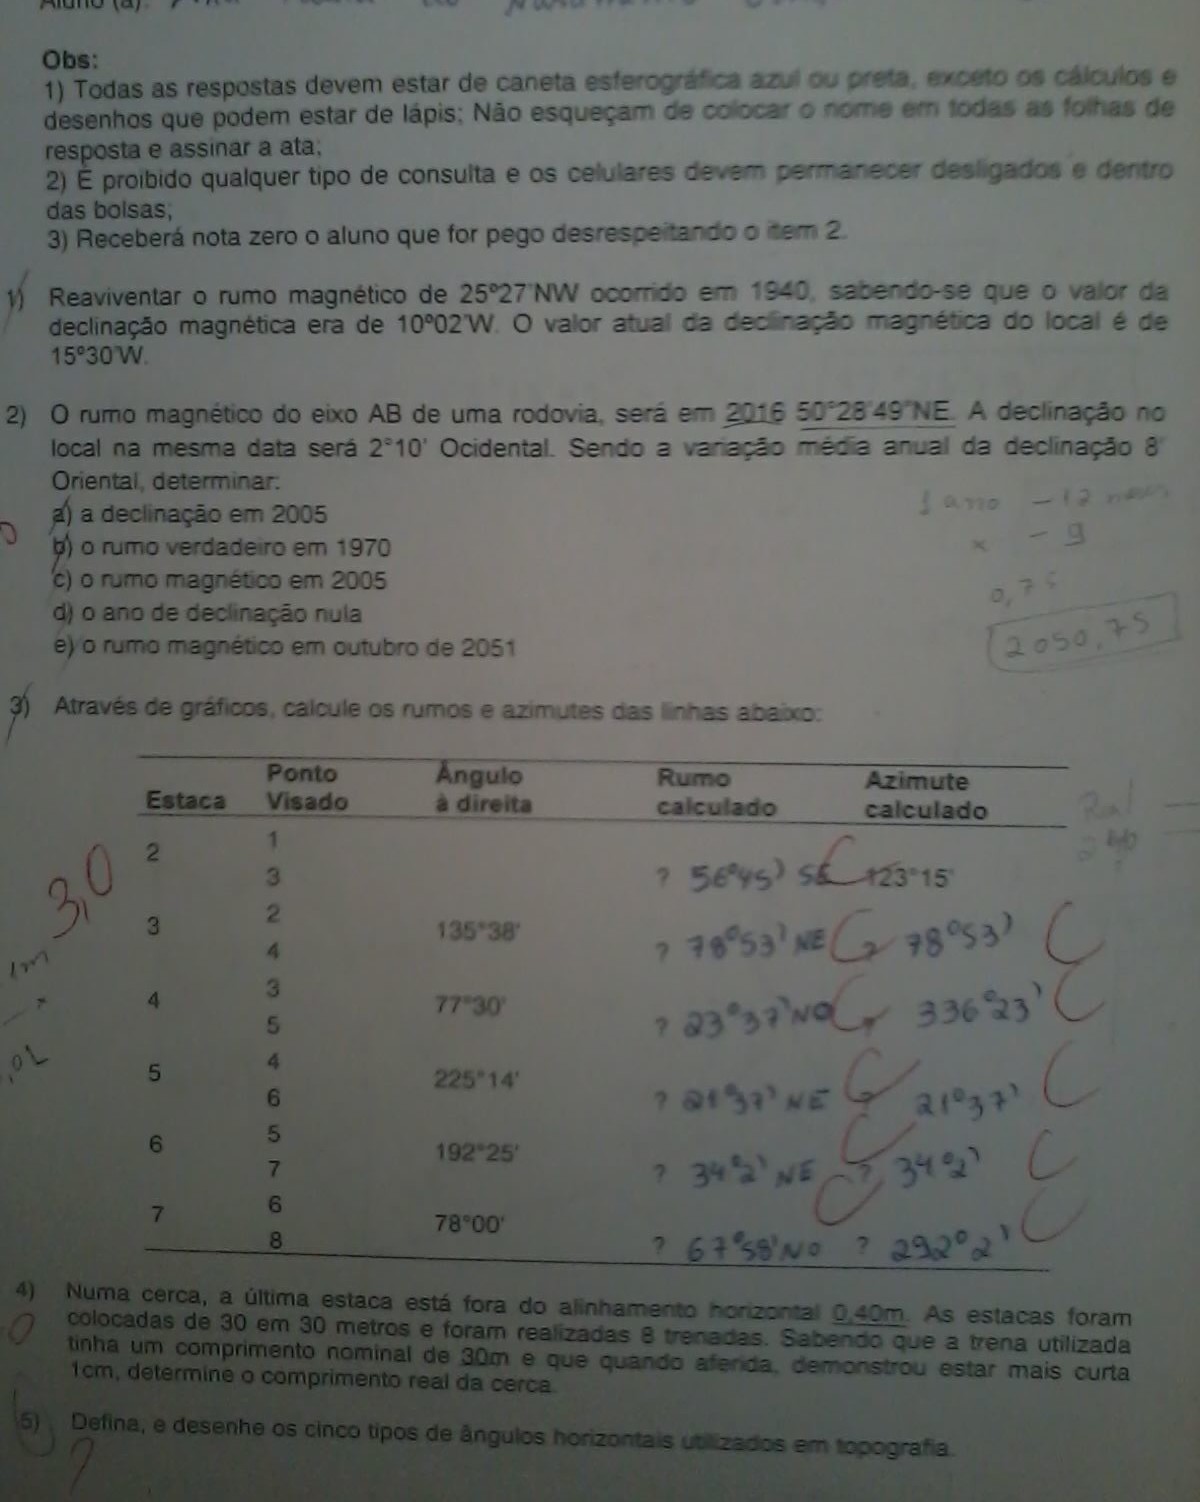 Aluno (a):
Obs:
1) Todas as respostas devem estar de caneta esferográfica azul ou preta, exceto os cálculos e
desenhos que podem estar de lápis; Não esqueçam de colocar o nome em todas as folhas de
resposta e assinar a ata;
2) É proibido qualquer tipo de consulta e os celulares devem permanecer desligados e dentro
das bolsas;
3) Receberá nota zero o aluno que for pego desrespeitando o item 2.
1) Reaviventar o rumo magnético de 25º27'NW ocorrido em 1940, sabendo-se que o valor da
declinação magnética era de 10º02'W. O valor atual da declinação magnética do local é de
15º30'W.
2) O rumo magnético do eixo AB de uma rodovia, será em 2016 50°28'49"NE. A declinação no
local na mesma data será 2°10' Ocidental. Sendo a variação média anual da declinação 8'
Oriental, determinar:
a) a declinação em 2005
b) o rumo verdadeiro em 1970
c) o rumo magnético em 2005
d) o ano de declinação nula
e) o rumo magnético em outubro de 2051
1 ano - 12 meses
x - 9
0,75
2050,75
3) Através de gráficos, calcule os rumos e azimutes das linhas abaixo:
Estaca Ponto Visado Ângulo à direita Rumo calculado Azimute calculado
2 1
3 ? 56°45' SE 123°15'
3 2 135°38'
4 ? 78°53' NE ? 78°53'
4 3 77°30'
5 ? 23°37' NO ? 336°23'
5 4 225°14'
6 ? 21°37' NE ? 21°37'
6 5 192°25'
7 ? 34°2' NE ? 34°2'
7 6 78°00'
8 ? 67°58' NO ? 292°2'
3,0
4) Numa cerca, a última estaca está fora do alinhamento horizontal 0,40m. As estacas foram
colocadas de 30 em 30 metros e foram realizadas 8 trenadas. Sabendo que a trena utilizada
tinha um comprimento nominal de 30m e que quando aferida, demonstrou estar mais curta
1cm, determine o comprimento real da cerca.
5) Defina, e desenhe os cinco tipos de ângulos horizontais utilizados em topografia.
?